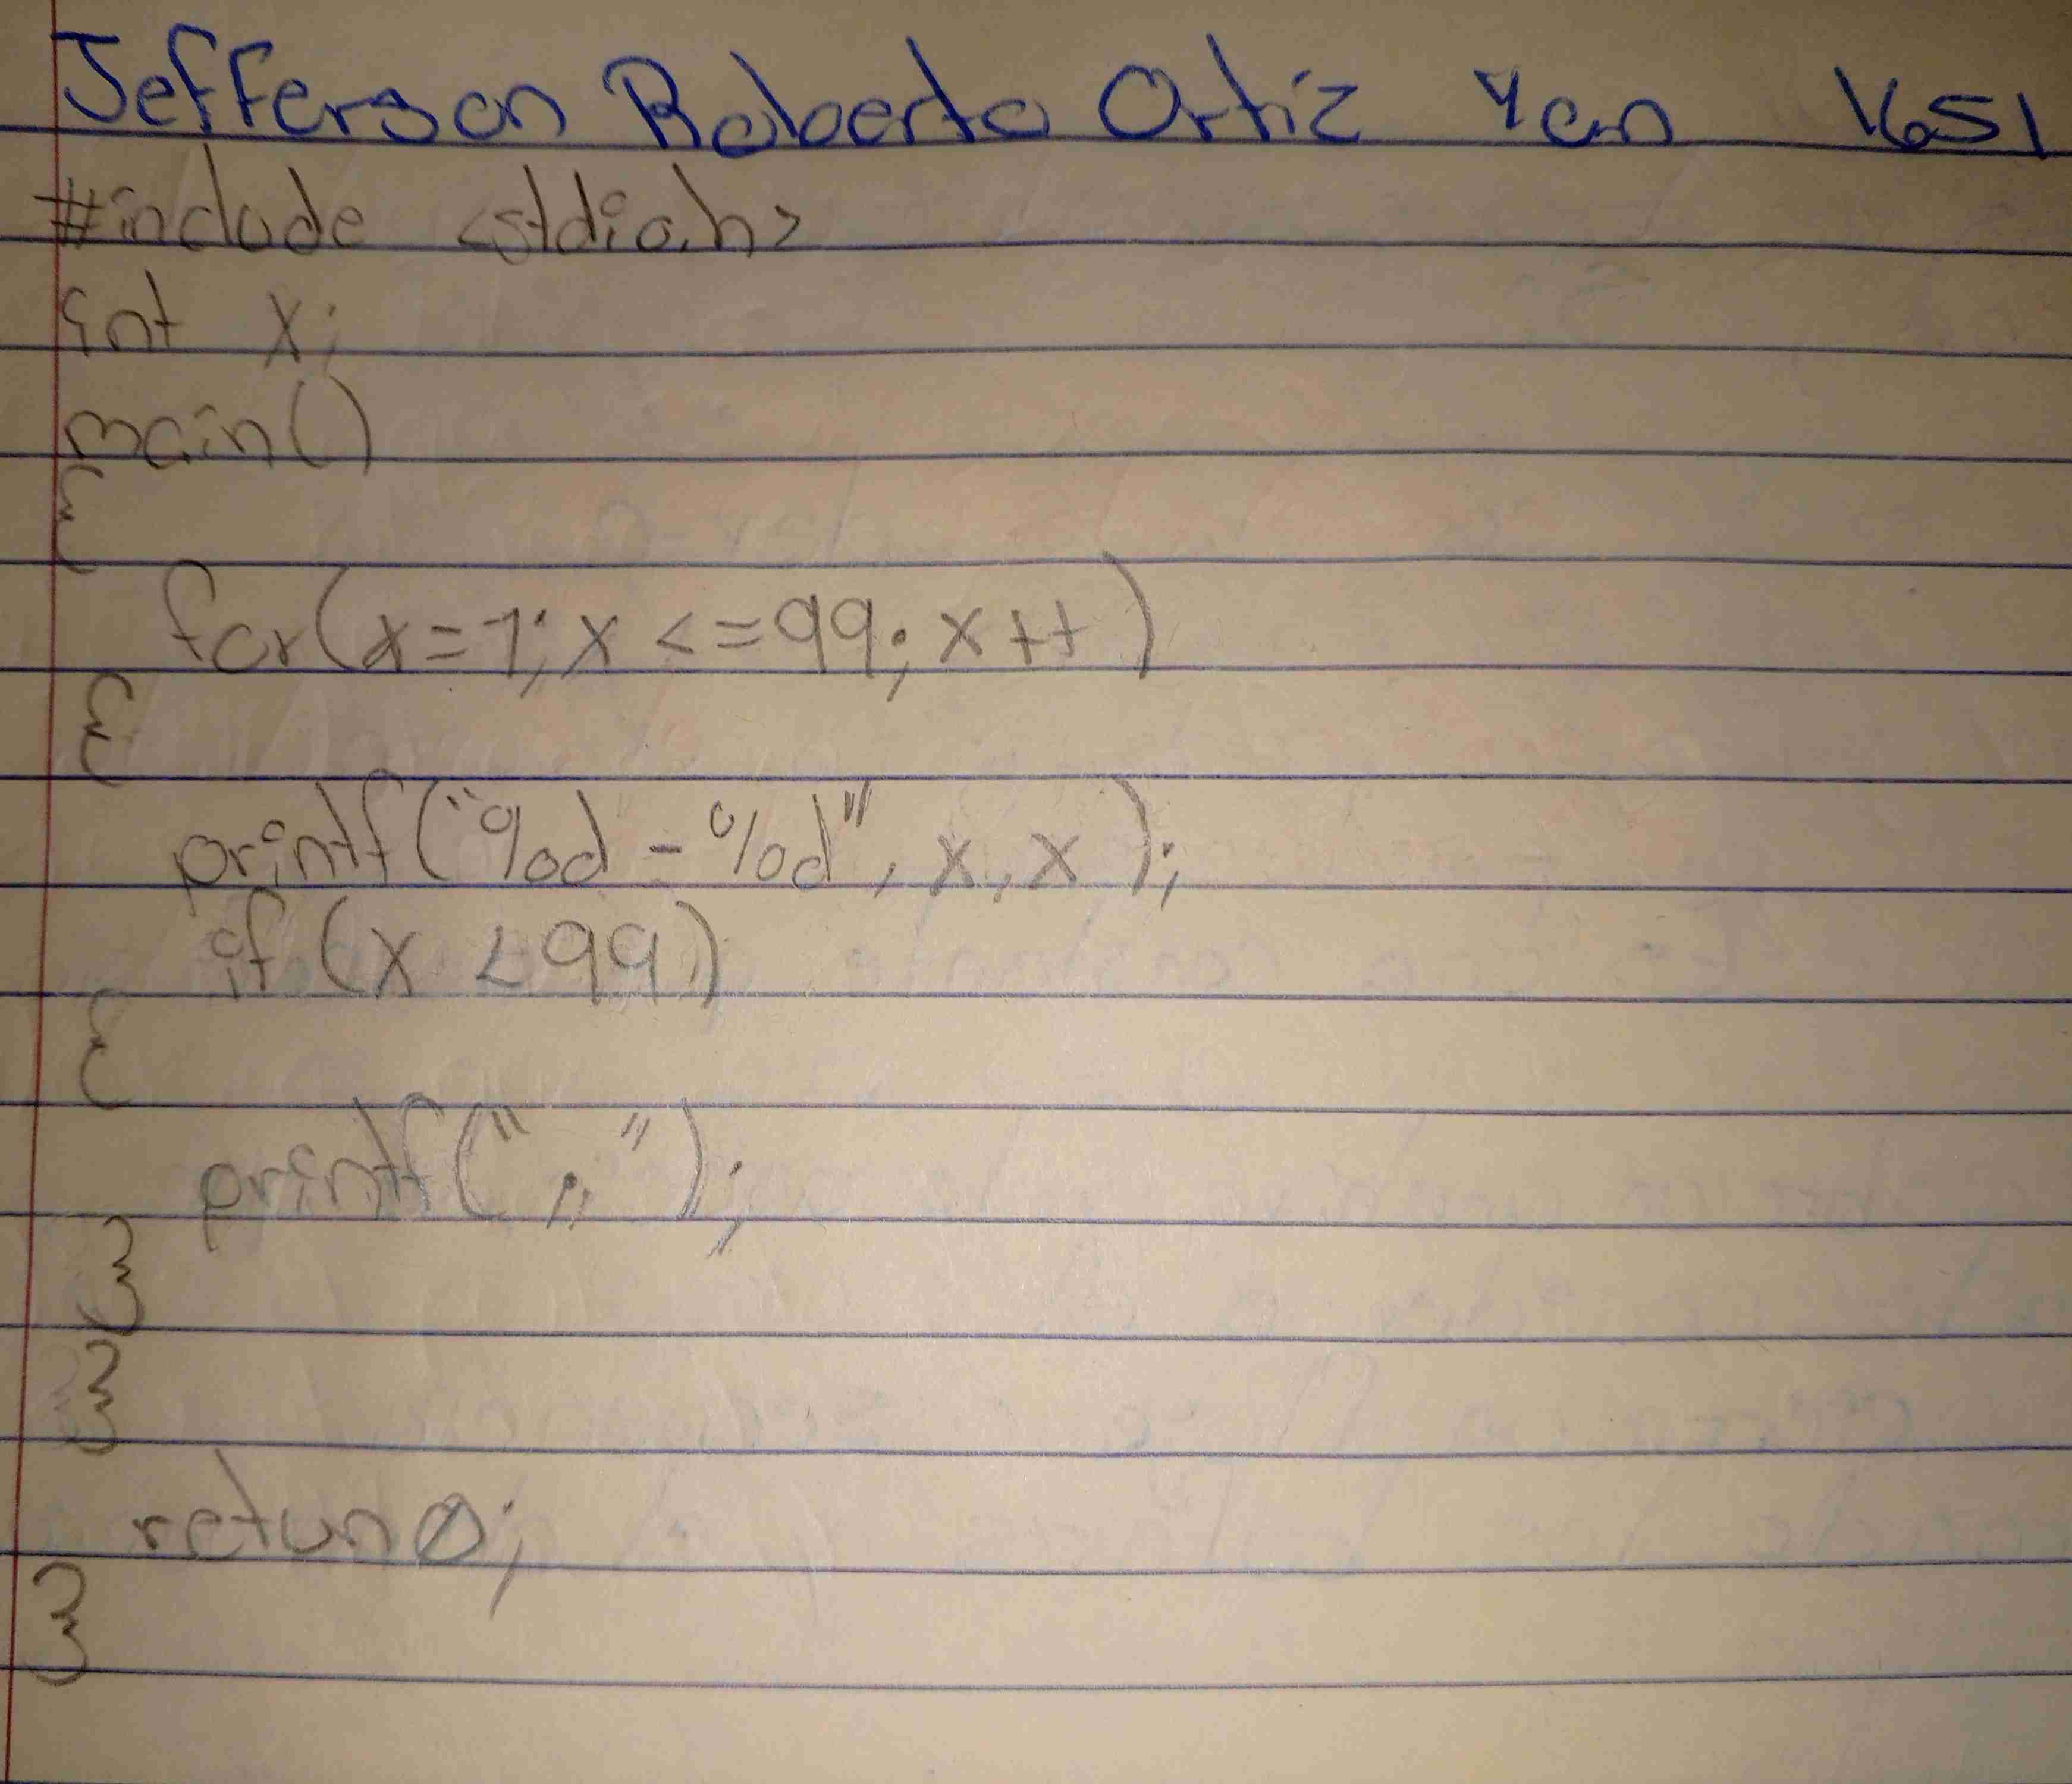 Jefferson Roberto Ortiz Yan 1651
#include <stdio.h>
int x;
main()
{
for(x=1; x <=99; x++)
{
printf("%d - %d", x, x);
if (x <99)
{
printf(" ;; ");
}
}
retun 0;
}